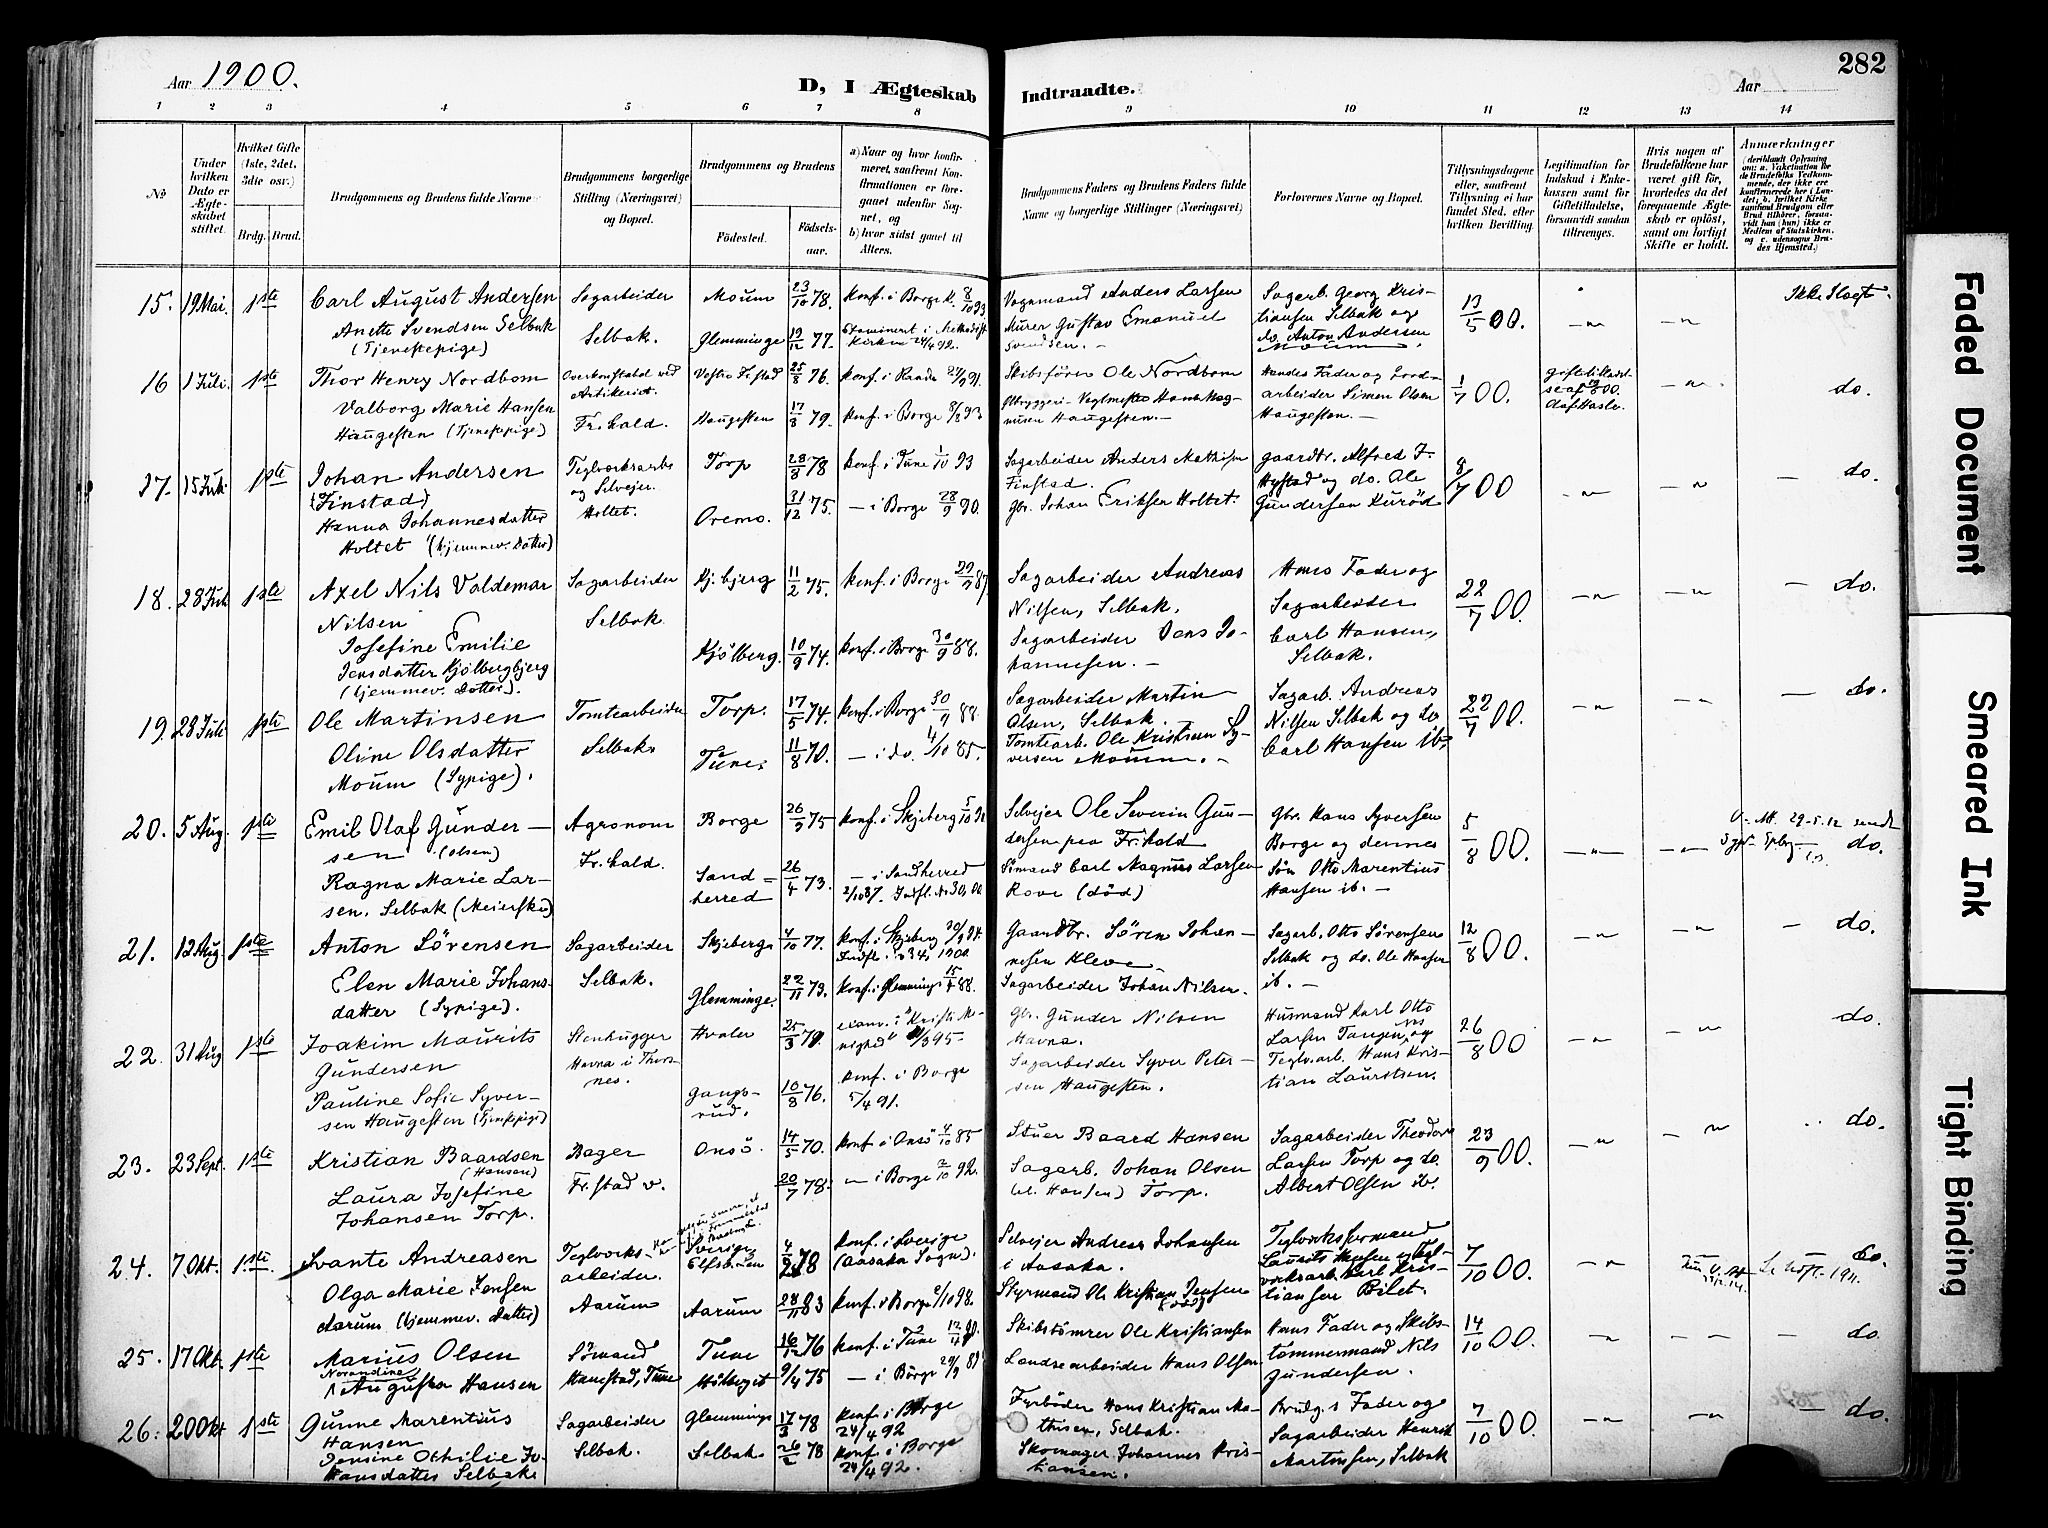 Aar 1900.
D, I Ægteskab Indtraadte.
Aar
282
1 2 3 4 5 6 7 8 9 10 11 12 13 14
No
Under hvilken Dato er Ægteskabet stiftet.
Hvilket Gifte (1ste, 2det, 3die osv.)
Brdg. Brud.
Brudgommens og Brudens fulde Navne
Brudgommens borgerlige Stilling (Næringsvei) og Bopæl.
Brudgommens og Brudens
Fødested. Fødselsaar.
a) Naar og hvor konfirmeret, saafremt Konfirmationen er foregaaet udenfor Sognet, og
b) hvor sidst gaaet til Alters.
Brudgommens Faders og Brudens Faders fulde Navne og borgerlige Stillinger (Næringsvei)
Forlovernes Navne og Bopæl.
Tillysningsdagene eller, saafremt Tillysning ei har fundet Sted, efter hvilken Bevilling.
Legitimation for Indskud i Enkekassen samt for Giftetilladelse, forsaavidt saadan tiltrænges.
Hvis nogen af Brudefolkene har været gift før, hvorledes da det foregaaende Ægteskab er opløst, samt om lovligt Skifte er holdt.
Anmærkninger
15. 19 Mai. 1ste
Carl August Andersen
Anette Svendsen Selbak
(Tjenestepige)
Sagarbeider
Selbak.
Moum 23/10 78.
Glemminge 19/12 77.
Konf. i Borge K. 8/10 93
Vognmand Anders Larsen
Murer Gustav Emanuel
Svendsen. -
Sagarb. Georg Kristiansen Selbak og
do. Anton Andersen
Moum.
13/5 00.
Ikke Slægt.
16 1 Juli. 1ste
Thor Henry Nordbom
Valborg Marie Hansen
Haugesten (Tjenestepige)
Overkonstabel ved
Fr.hald.
25/8 76.
Haugesten 17/8 79.
Konf. i Borge 8/3 93
Skibsfører Ole Nordbom
Haugesten. -
Hendes Fader og Jordarbeider Simen Olsen
Haugesten. -
1/7 00.
do.
17. 15 Juli 1ste
Johan Andersen
(Finstad)
Hanna Johannesdatter
Holtet (hjemmev. Datter)
Teglværksarb.
og Selveier
Holtet.
Torp 28/8 78
Oremo. 31/12 75.
Konf. i Tune 1/10 93
- i Borge 28/9 90.
Sagarbeider Anders Mathisen
Finstad.
Gbr. Johan Eriksen Holtet.
Gaardbr. Alfred F.
Hystad og do. Ole
Gundersen Kurød
8/7 00
do.
18. 28 Juli 1ste
Axel Nils Valdemar
Nilsen
Josefine Emilie
Jensdatter Kjølbergbjerg
(hjemmev. Datter).
Sagarbeider
Selbak.
Kj.bjerg 11/2 75.
Kjølberg. 10/9 74.
Konf. i Borge 29/9 87
Konf. i Borge 30/9 88.
Sagarbeider Andreas
Nilsen, Selbak.
Sagarbeider Jens Johannesen. -
Hans Fader og
Sagarbeider
Carl Hansen,
Selbak.
22/7 00.
do.
19. 28 Juli 1ste
Ole Martinsen
Oline Olsdatter
Moum (Sypige).
Tomtearbeider
Selbak
Torp. 17/5 74.
Tune. 11/8 70.
Konf. i Borge 30/9 88.
- i do. 4/10 85.
Sagarbeider Martin
Olsen, Selbak.
Tomtearb. Ole Kristian Syversen Moum. -
Sagarb. Andreas
Nilsen Selbak og do
Carl Hansen ib.
22/7 00.
do.
20. 5 Aug. 1ste
Emil Olaf Gundersen (Olsen)
Ragna Marie Larsen. Selbak (Meierske)
Agronom
Fr.hald.
Borge 26/9 75
Sandherred 26/4 73.
Konf. i Skjeberg
- i Sandherred
2/10 87.
Selveier Ole Severin Gundersen paa Fr.hald
Sømand Carl Magnus Larsen
Rove (død)
Gbr. Hans Syversen
Borge og dennes
Søn Otto Marentius
Hansen ib. -
5/8 00.
do.
21. 12 Aug. 1ste
Anton Sørensen
Elen Marie Johansdatter (Sypige).
Sagarbeider
Selbak.
Skjeberg 4/10 77.
Glemminge. 22/11 73.
Konf. i Skjeberg
Konf. i Glemminge 15/4 88.
Gaardbr. Søren Johannesen Kleve
Sagarbeider Johan Nilsen.
Sagarb. Otto Sørensen
Selbak og do. Ole Hansen
ib. -
12/8 00.
do.
22. 31 Aug 1ste
Joakim Maurits
Gundersen
Pauline Sofie Syversen Haugesten (Tjenestepige)
Stenhugger
Havna i Thorsnes.
Hvaler
Gangsrud. 10/8 76.
Konf. i Borge
5/4 91.
Gbr. Gunder Nilsen
Havna.
Sagarbeider Syver Petersen Haugesten.
Husmand Karl Otto
Larsen Tangen og
Teglv.arb. Hans Kristian Lauritsen.
26/8 00
do.
23. 23 Sept. 1ste
Kristian Baardsen
(Hansen)
Laura Josefine
Johansen Torp.
Bager
Fr.stad v.
Onsø. 14/5 70.
20/7 78.
Konf. i Onsø 4/10 85
- i Borge 2/10 92.
Stuer Baard Hansen
Sagarb. Johan Olsen
(el. Hansen) Torp.
Sagarbeider Theodor
Larsen Torp og do.
Albert Olsen ib.
23/9 00.
do.
24. 7 Okt. 1ste
Svante Andreasen
Olga Marie Jensen
Aarum (hjemmev. Datter)
Teglværksarbeider.
Aarum
Sverige
Aarum 28/11 83
Konf. i Sverige
(Aasaka Sogn).
Konf. i Borge 2/10 98.
Selveier Andreas Johansen
i Aasaka.
Styrmand Ole Kristian Jensen
(død)
Teglværksformand
Laurits Hansen og Teglværksarb. Karl Kristiansen Bilet.
7/10 00.
do.
25. 17 Okt. 1ste
Marius Olsen
Norandine
Augusta Hansen
Sømand
Hanestad, Tune
Tune 16/12 76
9/4 75
Konf. i Tune
- i Borge
Skibstømrer Ole Kristiansen
Landsearbeider Hans Olsen
Hans Fader og Skibstømmermand Nils
Gundersen.
14/10 00.
do.
26. 20 Okt 1ste
Gunne Marentius
Hansen
Jensine Othilie Johansdatter Selbak
Sagarbeider
Selbak.
Glemminge 17/3 78
Selbak 26/2 78
Konf. i Borge
24/4 92
Konf. i Borge
24/4 92.
Fyrbøder Hans Kristian Mathisen, Selbak.
Skomager Johannes Kristiansen.
Brudg.s Fader og
Sagarbeider Henrik
Martinsen, Selbak
7/10 00.
do.
Faded Document
Smeared Ink
Tight Binding